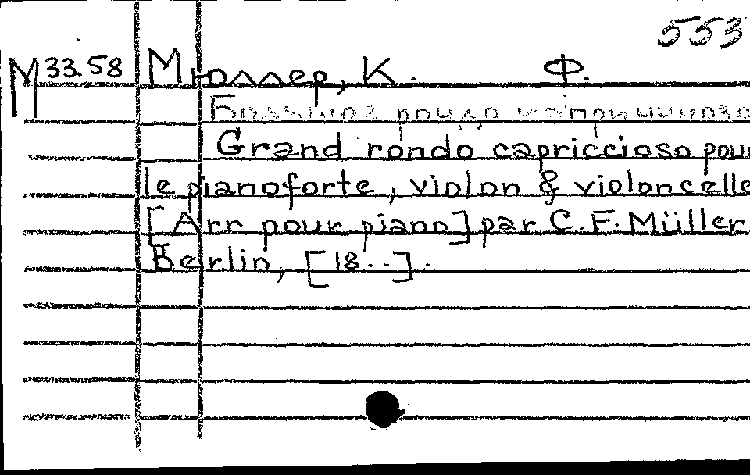 553
М 33.58 Мюллер, К. Ф.
Большое рондо каприччиозо
Grand rondo capriccioso pour
le pianoforte, violon & violoncelle
[Arr pour piano] par C. F. Müller
Berlin, [18..].